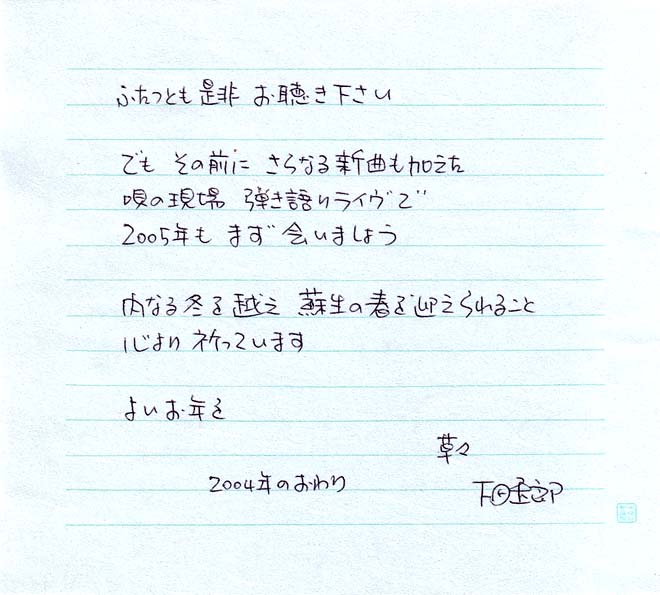 ふたつとも 是非 お聴き下さい
でも その前に さらなる新曲も加えた
唄の現場 弾き語りライヴで
2005年も まず 会いましょう
内なる冬を越え 蘇生の春を迎えられること
心より 祈っています
よいお年を
草々
2004年のおわり
下田逸郎